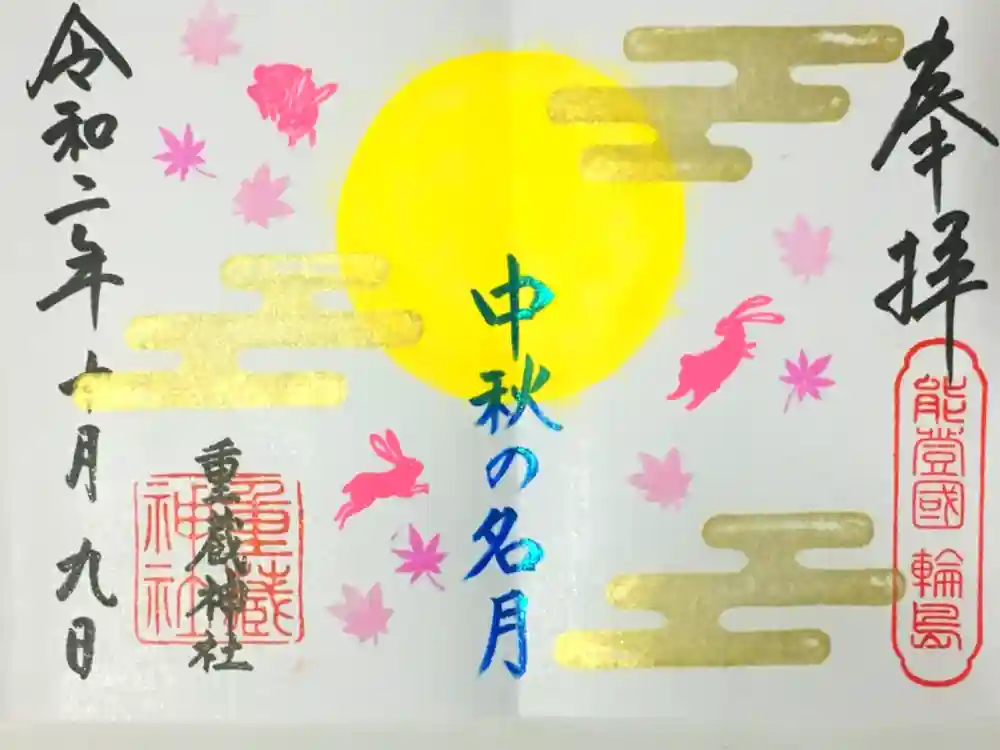 奉拝
能登國 輪島
中秋の名月
重蔵神社
重蔵
神社
令和二年十月九日